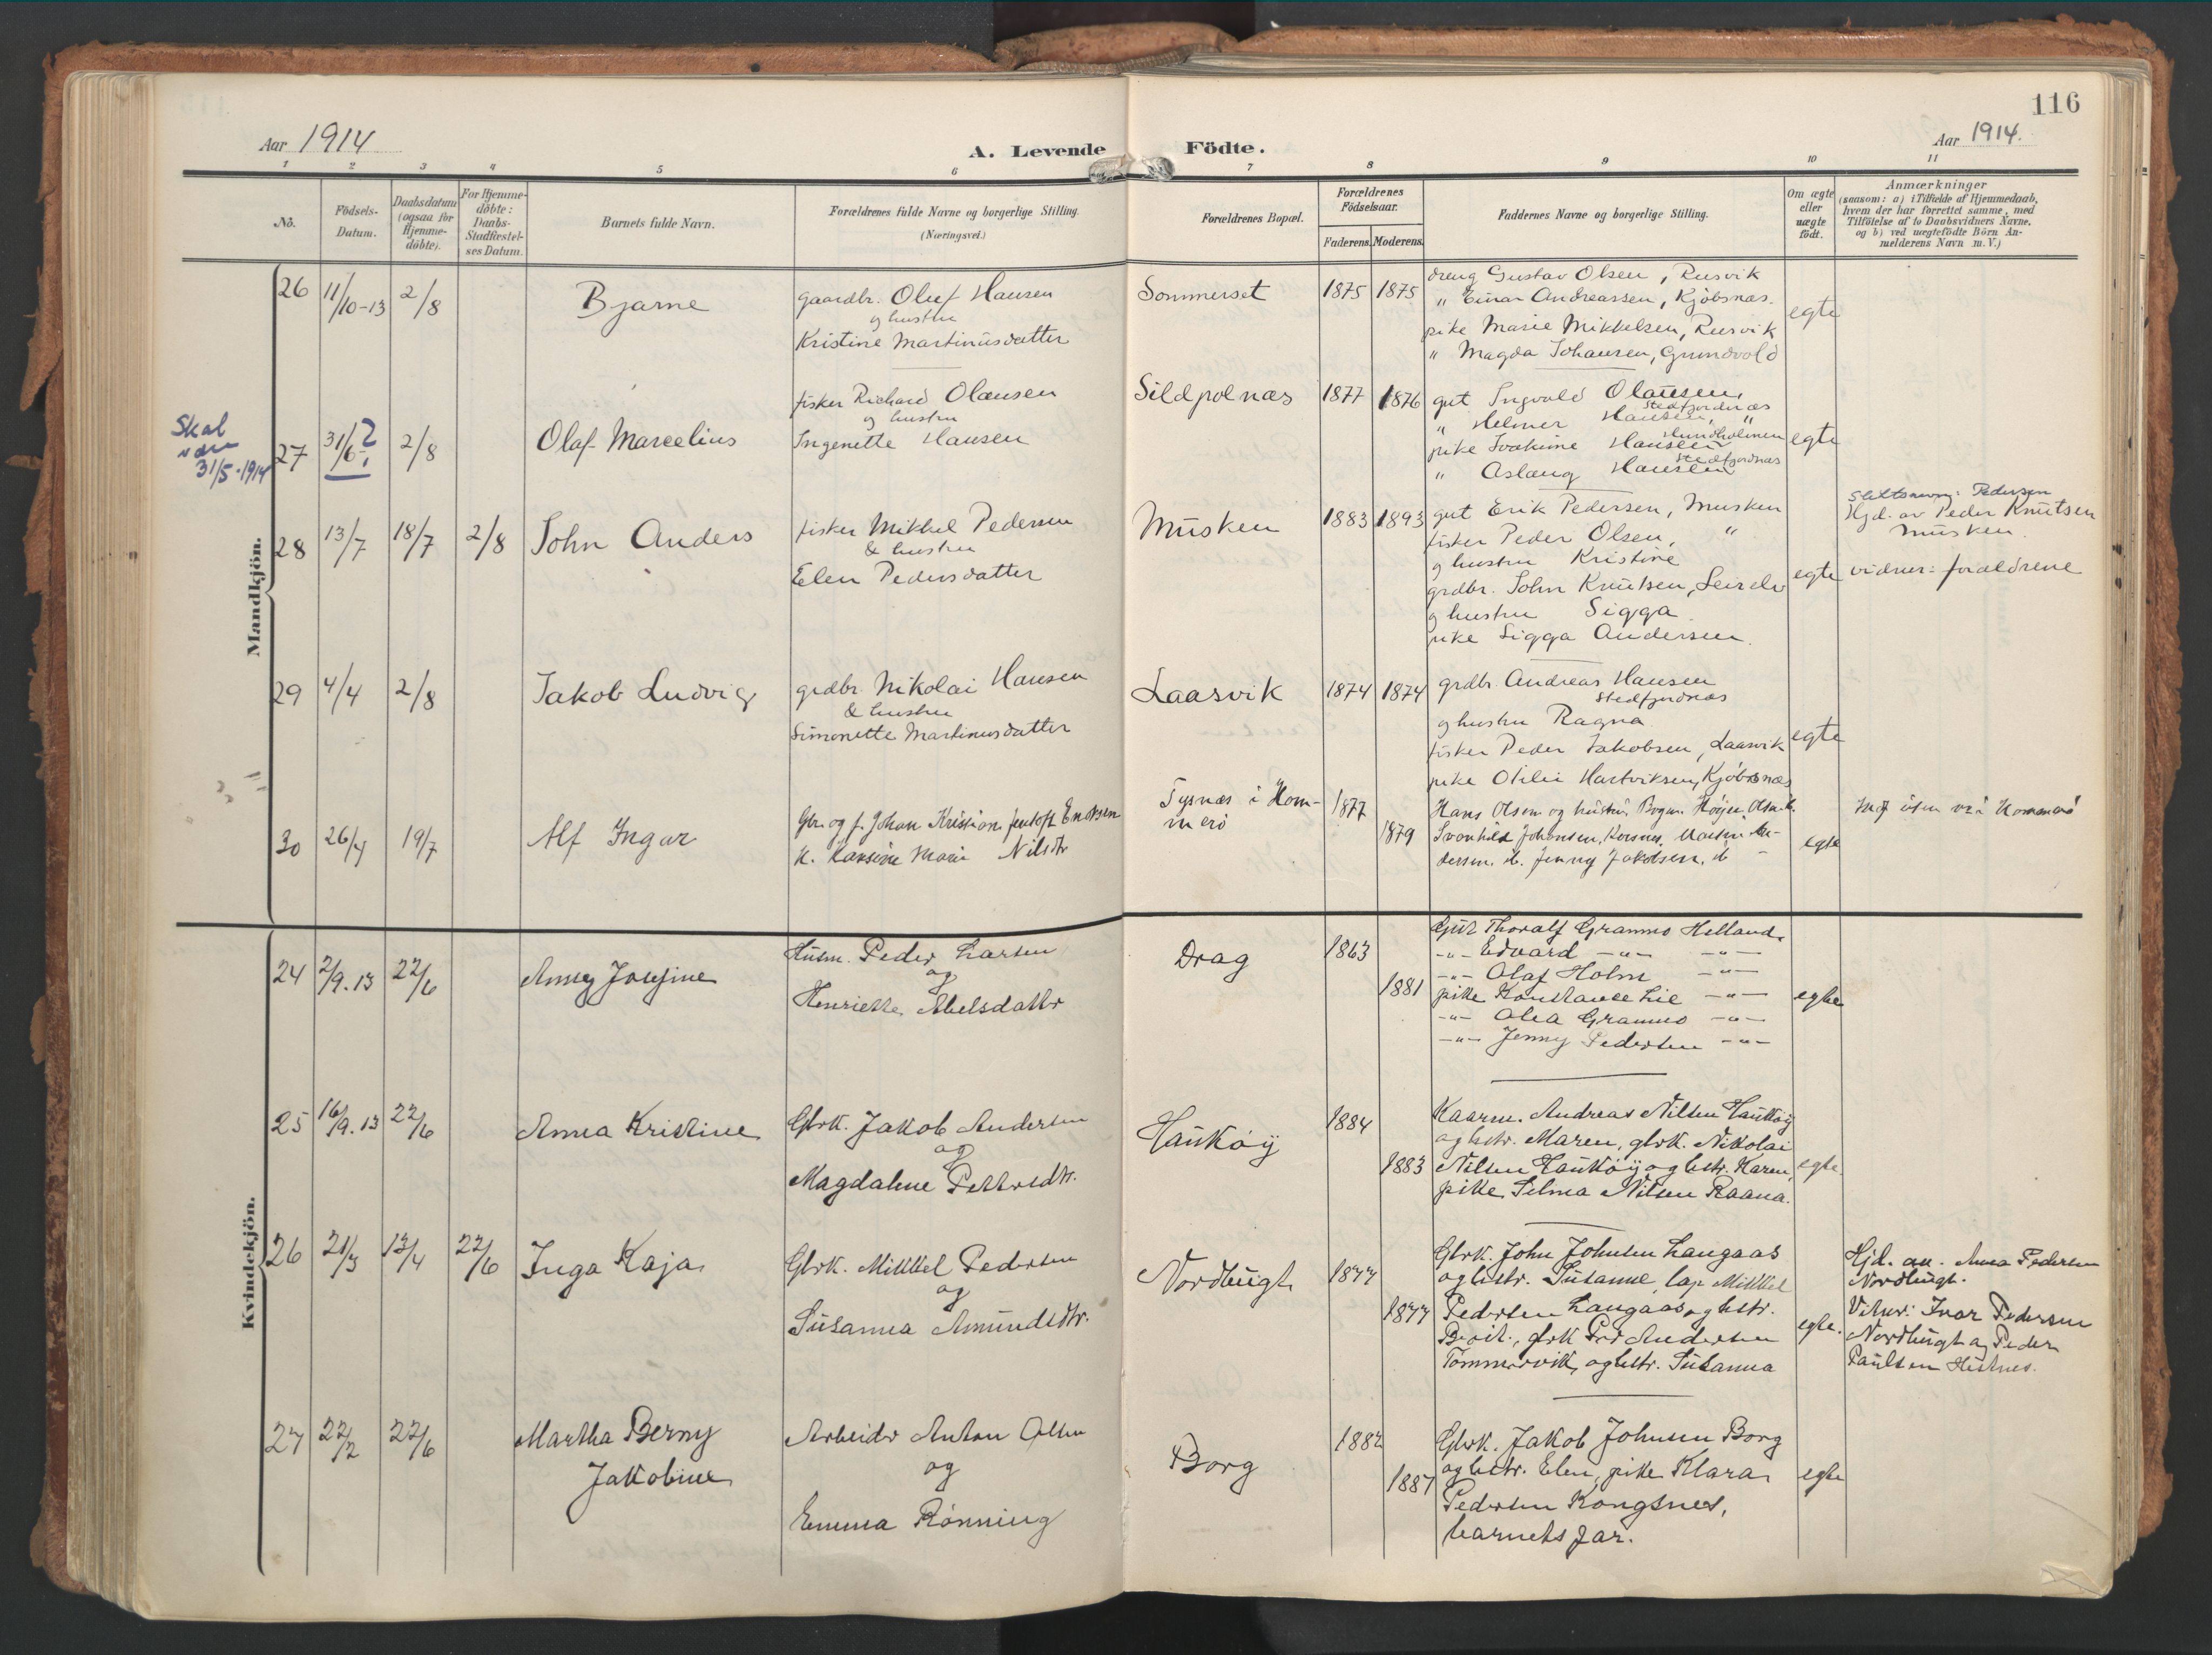 116
Aar 1914
A. Levende Födte.
Aar 1914.
1 2 3 4 5 6 7 8 9 10 11
No.
Födsels-Datum.
Daabsdatum (ogsaa for Hjemme-döbte).
For Hjemme-döbte: Daabs-Stadfestel-ses Datum.
Barnets fulde Navn.
Forældrenes fulde Navne og borgerlige Stilling.
(Næringsvei.)
Forældrenes Bopæl.
Forældrenes Födselsaar.
Faderens. Moderens.
Faddernes Navne og borgerlige Stilling.
Om ægte eller uægte födt.
Anmærkninger
(saasom: a) i Tilfælde af Hjemmedaab,
hvem der har forrettet samme, med
Tilföielse af to Daabsvidners Navne,
og b) ved uægtefödte Börn An-
melderens Navn m. V.)
Mandkjön.
26 11/10-13 2/8 Bjarne
gaardbr. Oluf Hansen
og hustru
Kristine Martinusdatter
Sommerset 1875 1875
dreng Gustav Olsen, Rusvik
" Einar Andreassen, Kjöbsnæs.
pike Marie Mikkelsen, Rusvik
" Magda Johansen, Grundvold
egte
Skal
være
31/5-1914
27 31/6? 2/8 Olaf Marcelius
fisker Richard Olausen
og hustru
Ingenette Hansen
Sildpolnæs 1877 1876
gut Ingvald Olausen,
Stedfjordnæs
" Helmer Hansen, "
Hundholmen
pike Joakime Hansen
Stedfjordnæs
" Aslaug Hansen
egte
28 13/7 18/7 2/8 John Anders
fisker Mikkel Pedersen
& hustru
Elen Pedersdatter
Musken 1883 1893
gut Erik Pedersen, Musken
fisker Peder Olsen, "
og hustru Kristine
grdbr. John Knutsen, Leirelv
og hustru Sigga
pike Sigga Andersen.
egte
Slektsnavn: Pedersen
Hjd. av Peder Knutsen
Musken.
vidner: forældrene
29 4/4 2/8 Jakob Ludvig
grdbr. Nikolai Hansen
& hustru
Simonette Martinusdatter
Laasvik 1874 1874
grdbr. Andreas Hansen
Stedfjordnæs
og hustru Ragna.
fisker Peder Jakobsen, Laasvik
pike Otilie Hartviksen, Kjöbsnæs
egte
30 26/4 19/7 Alf Ingar
Gbr. og f. Johan Kristian Enoksen
K. Karsine Marie Nilsdtr
Tysnæs i Hom-
merö 1877 1879
Hans Olsen og hustru,
Svanhild Johansen, Korsnes, An-
dersen, d. Jenny Jakobsen, d "
egte
Kvindekjön.
24 2/9.13 22/6 Anny Josefine
Husm. Peder Larsen
og
Henriette Abelsdattr
Drag 1863 1881
Gut Thoralf Grammo Helland.
-"- Edvard -"- -"-
-"- Olaf Holm -"-
pike Konstance Lie -"-
-"- Olea Grammo -"-
-"- Jenny Pedersen -"-
egte
25 16/9.13 22/6 Anna Kristine
Gbrk. Jakob Andersen
og
Magdalene Pettersdtr.
Haukøy 1884 1883
Kaarm. Andreas Nilsen Haukøy
og hstr. Maren, gbrk. Nikolai
Nilsen Haukøy og hstr. Karen,
pike Selma Nilsen Raana.
egte.
26 21/3 13/4 22/6 Inga Kaja
Gbrk. Mikkel Pedersen
og
Susanna Amundsdtr.
Nordbugt 1877 1877
Gbrk. John Johnsen Langaas
og hustr. Susanne, lap Mikkel
Pedersen Langaas og hstr.
Berit, gbrk Per Andersen
Tømmervik, og hstr. Susanna
egte.
Hjd. av. Anna Pedersen
Nordbugt.
Vitner: Ivar Pedersen
Nordbugt og Peder
Paulsen Hestnes.
27 22/2 22/6 Martha Berny
Jakobine
Arbeider Anton Olsen
og
Emma Rönning
Borg 1882 1887
Gbrk. Jakob Johnsen Borg
og hstr. Elen, pike Klara
Pedersen Kongsnes,
barnets far.
egte